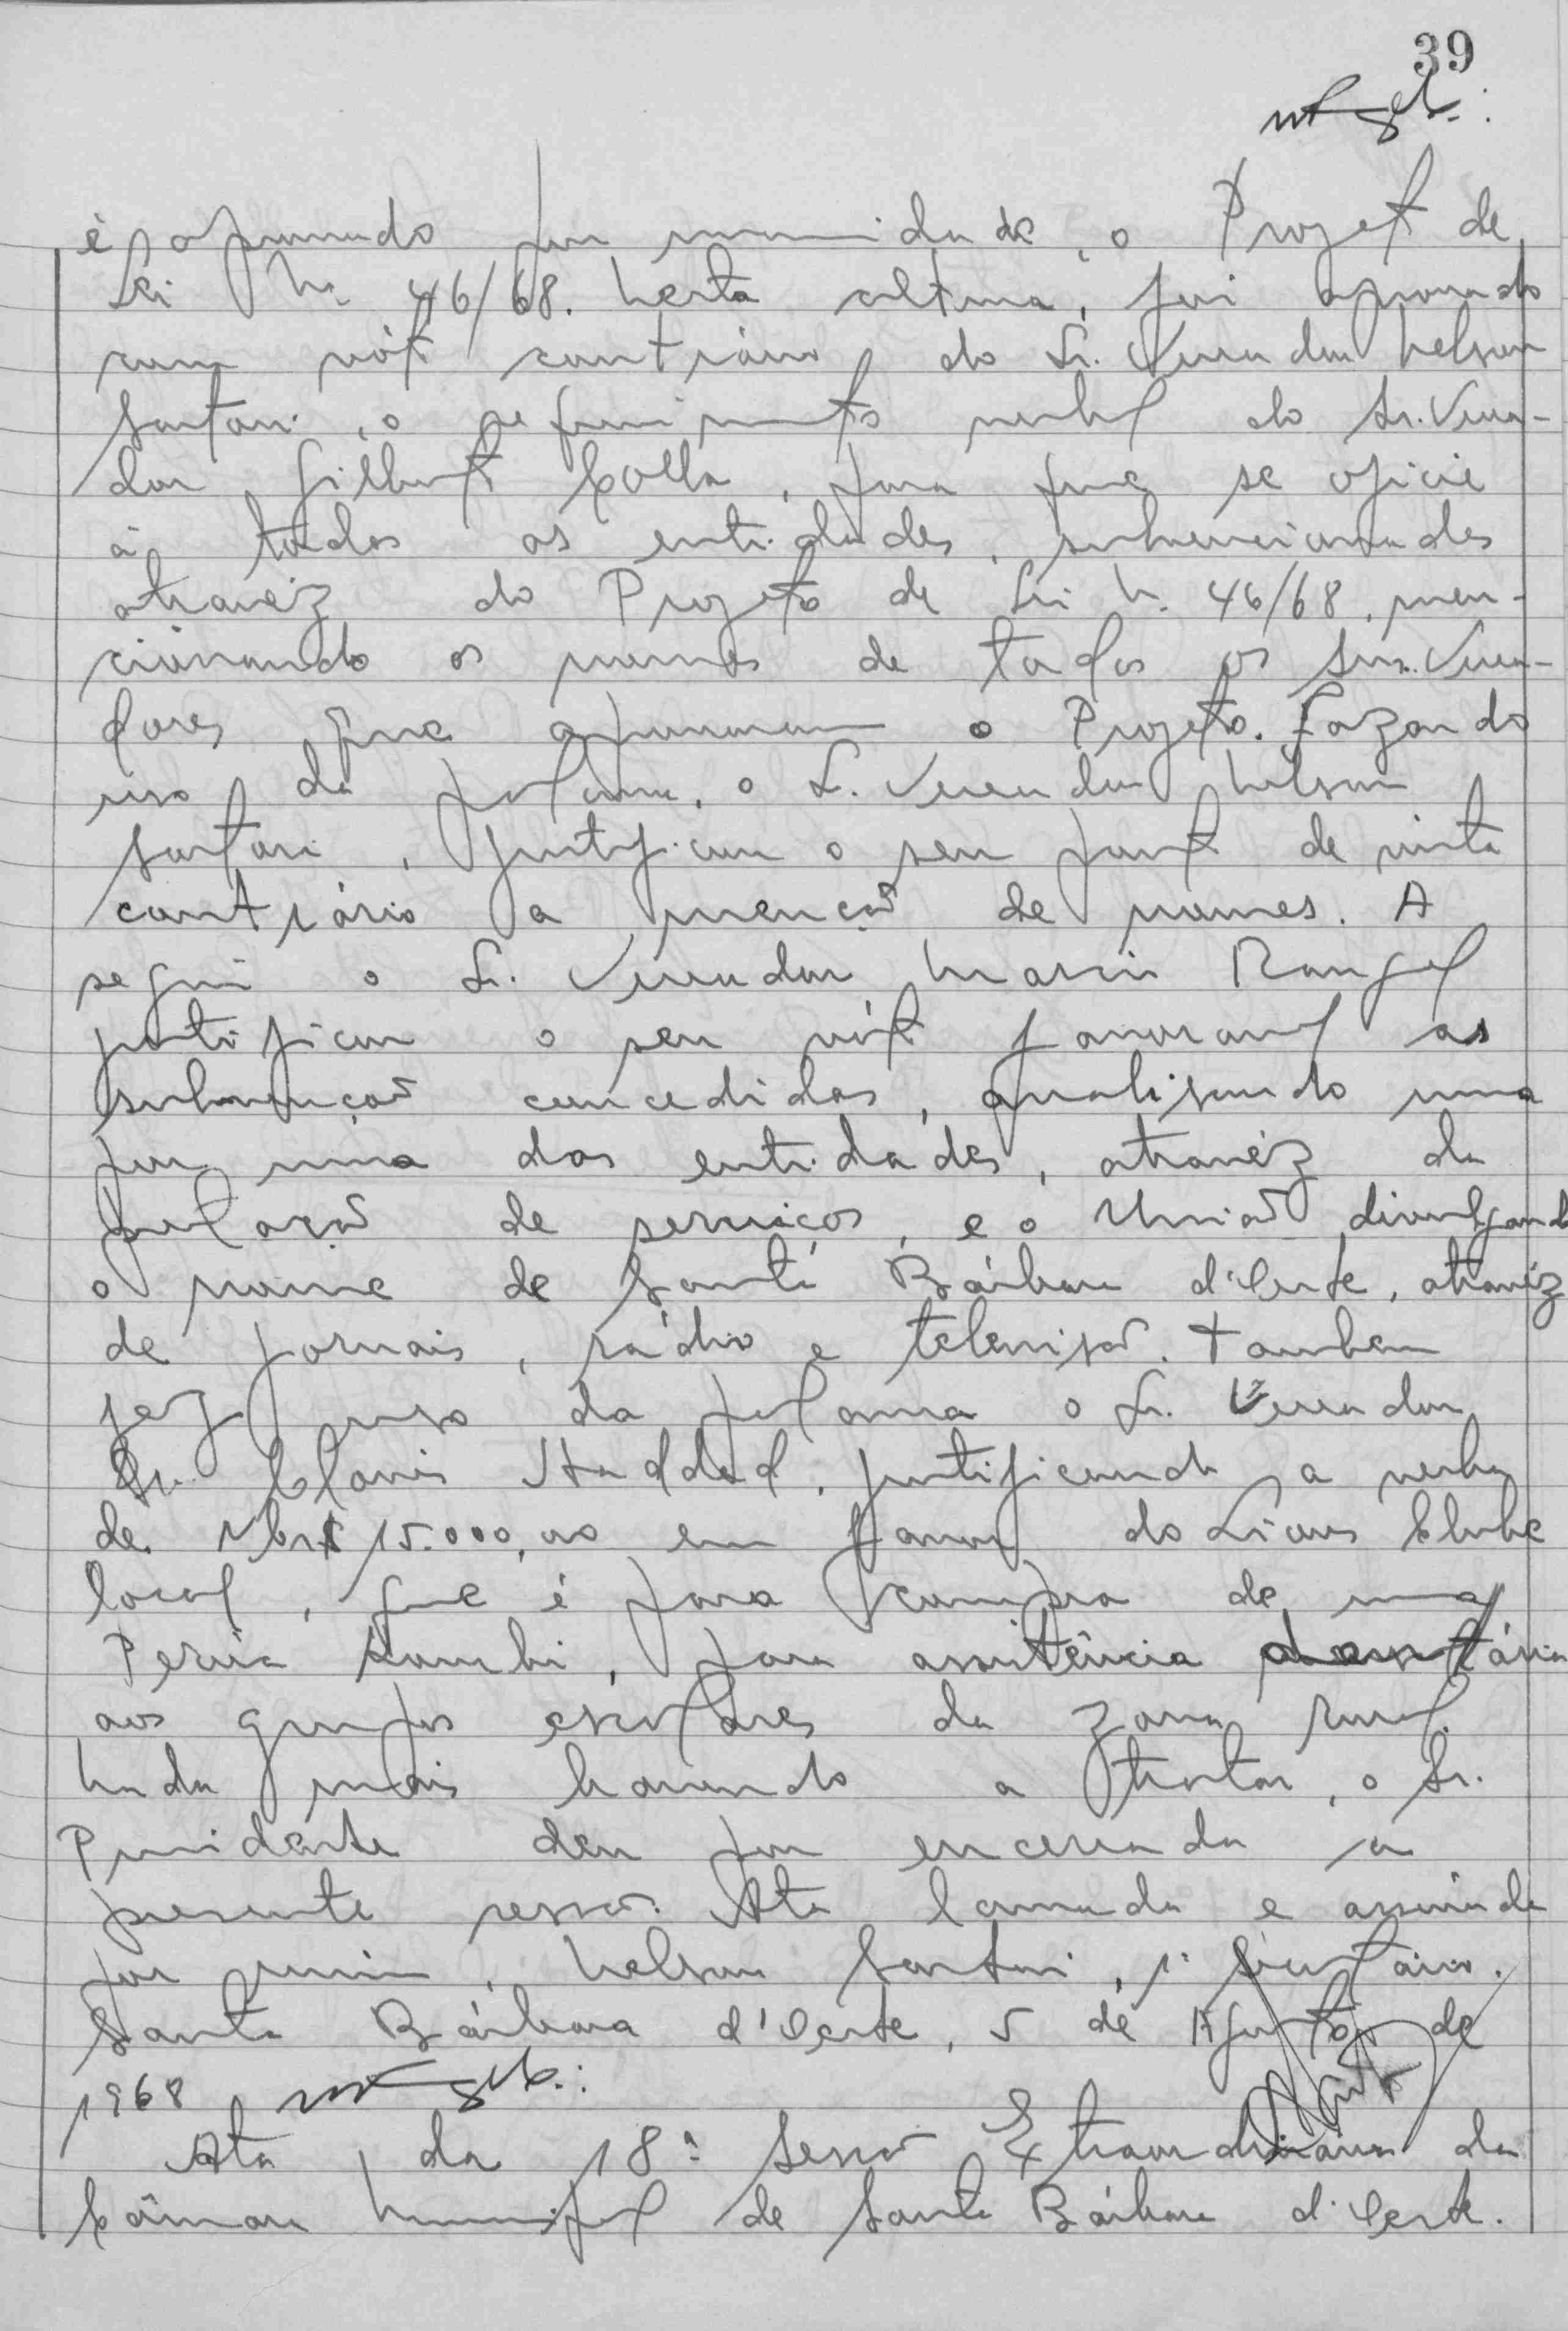 39
é aprovado por unanimidade, o Projeto de
Lei Nº 46/68. Nesta altura, foi aprovado
com vóto contrário do Sr. Vereador Nelson
Sartori, o requerimento verbal do Sr. Verea-
dor Gilberto Colla, para que se oficie
á todas as entidades, subvencionadas
atravéz do Projeto de Lei N. 46/68, men-
cionando os nomes de todos os Srs. Verea-
dores que aprovaram o Projeto. Fazendo
uso da palavra, o Sr. Vereador Nelson
Sartori, justificou o seu ponto de vista
contrário a menção de nomes. A
seguir o Sr. Vereador Mario Rangel
justificou o seu vóto favoravel as
subvenção concedidas, analisando uma
por uma das entidades, atravéz da
relação de serviços, e o União divulgando
o nome de Santa Bárbara d'Oeste, atravéz
de jornais, rádio e televisão. Tambem
fez uso da palavra o Sr. Vereador
Dr. Clovis Haddad, justificando a verba
de NCr$ 15.000,00 em favor do Lions Clube
local, que é para compra de uma
Perúa Kombi, para assistência dentária
aos grupos escolares da zona rural.
Nada mais havendo a tratar, o Sr.
Presidente deu por encerrada a
presente sessão. Ata lavrada e assinada
por mim, Nelson Sartori, 1º Secretário.
Santa Bárbara d'Oeste, 5 de Agosto de
1968
Ata da 18ª Sessão Extraordinária da
Câmara Municipal de Santa Bárbara d'Oeste.